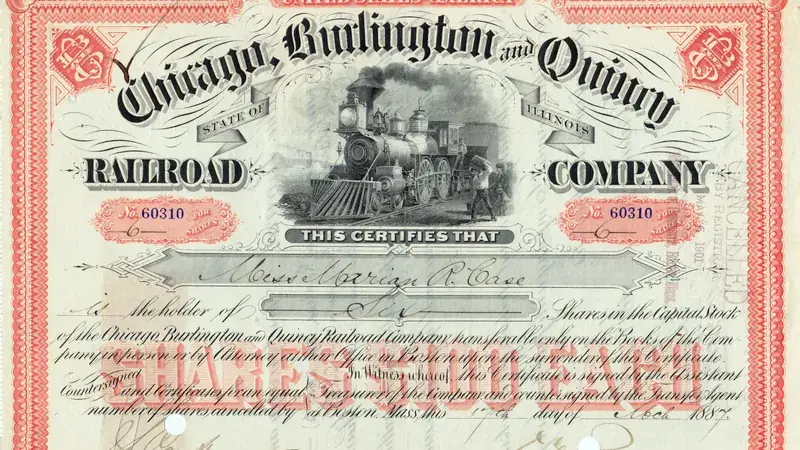 UNITED STATES AMERICA
Chicago, Burlington and Quincy
STATE OF ILLINOIS
RAILROAD COMPANY
No. 60310 FOR SHARES
6
No. 60310 FOR SHARES
6
THIS CERTIFIES THAT
Miss Marian R. Case
is the holder of Six Shares in the Capital Stock
of the Chicago, Burlington and Quincy Railroad Company, transferable only on the Books of the Com-
pany in person or by Attorney at their Office in Boston upon the surrender of this Certificate
SHARES $100 EACH
Countersigned
and Certificates for an equal
number of shares cancelled by
In Witness whereof, this Certificate is signed by the Assistant
Treasurer of the Company and countersigned by the Transfer Agent
at Boston, Mass. this 17th day of Mch 1887.
CANCELLED
BY REGISTER
1901